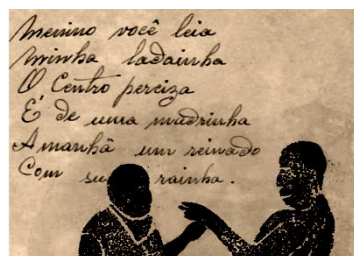 Menino você leia
Minha ladainha
O Centro perciza
É de uma madrinha
Amanhã um reinado
Com su rainha.